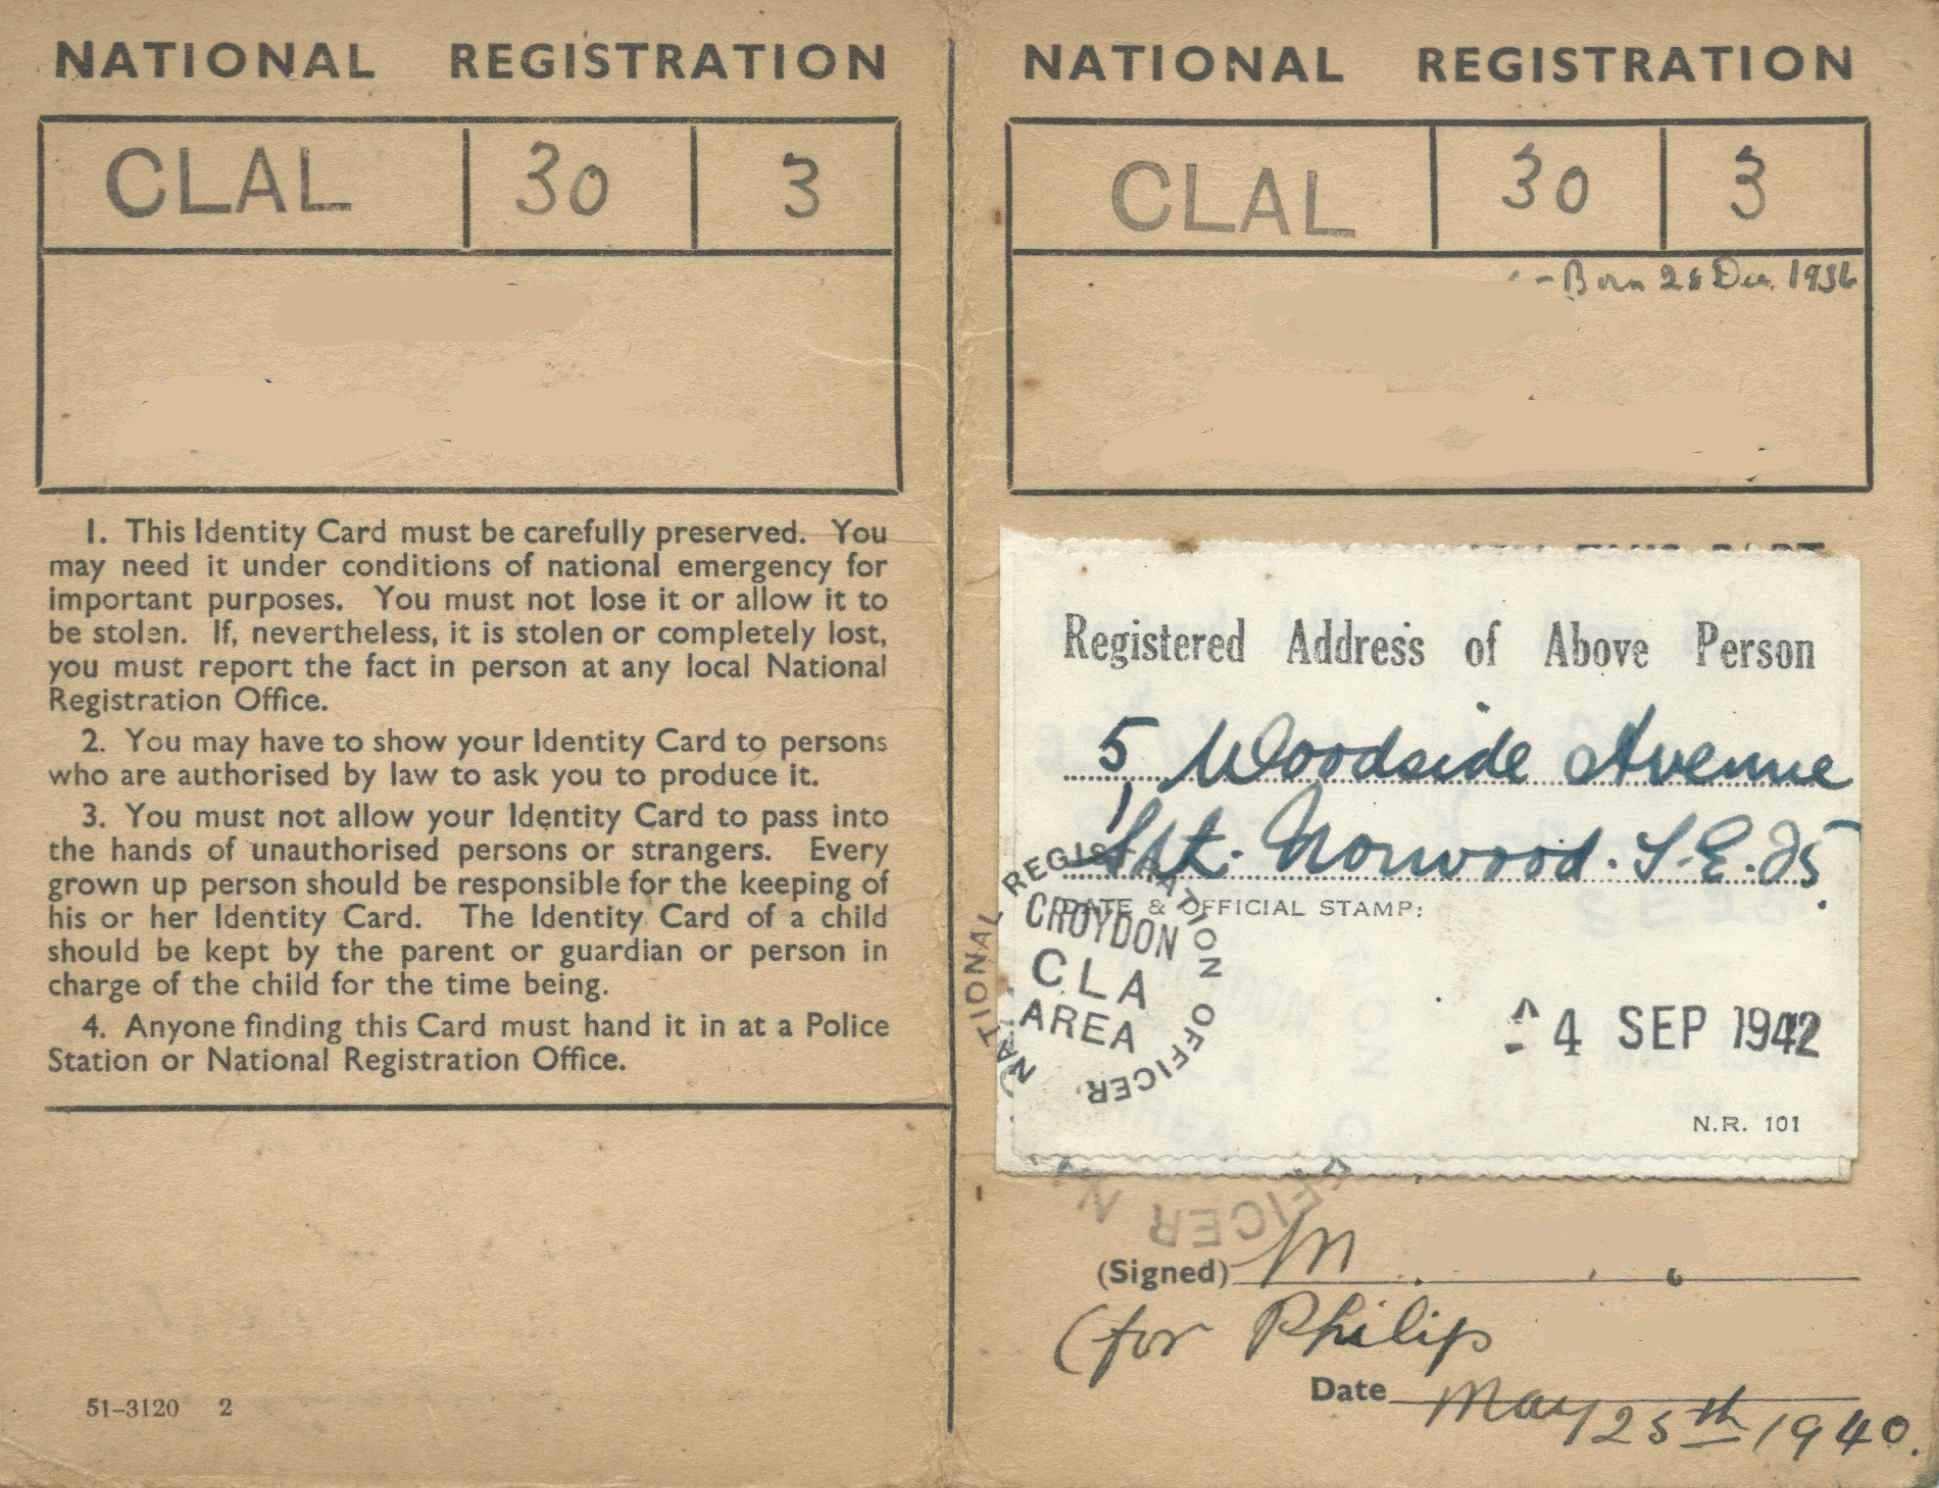 NATIONAL REGISTRATION
CLAL 30 3
1. This Identity Card must be carefully preserved. You
may need it under conditions of national emergency for
important purposes. You must not lose it or allow it to
be stolen. If, nevertheless, it is stolen or completely lost,
you must report the fact in person at any local National
Registration Office.
2. You may have to show your Identity Card to persons
who are authorised by law to ask you to produce it.
3. You must not allow your Identity Card to pass into
the hands of unauthorised persons or strangers. Every
grown up person should be responsible for the keeping of
his or her Identity Card. The Identity Card of a child
should be kept by the parent or guardian or person in
charge of the child for the time being.
4. Anyone finding this Card must hand it in at a Police
Station or National Registration Office.
51-3120 2
NATIONAL REGISTRATION
CLAL 30 3
Born 28 Dec. 1936
Registered Address of Above Person
5 Woodside Avenue
Sth. Norwood. S.E. 25.
DATE & OFFICIAL STAMP:
NATIONAL REGISTRATION OFFICER
CROYDON
CLA
AREA
4 SEP 1942
N.R. 101
OFFICER N
(Signed) M
(for Philip
Date May 25th 1940.